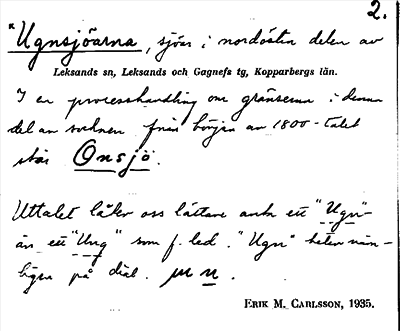 2.
"Ugnsjöarna, sjöar i nordöstra delen av
Leksands sn, Leksands och Gagnefs tg, Kopparbergs län.
I en processhandling om gränserna i denna
del av socknen från början av 1800-talet
står Onsjö.
Uttalet låter oss lättare anta ett "Ugn"
än ett "Ung" som f. led. "Ugn" heter näm-
ligen på dial.
ERIK M. CARLSSON, 1935.